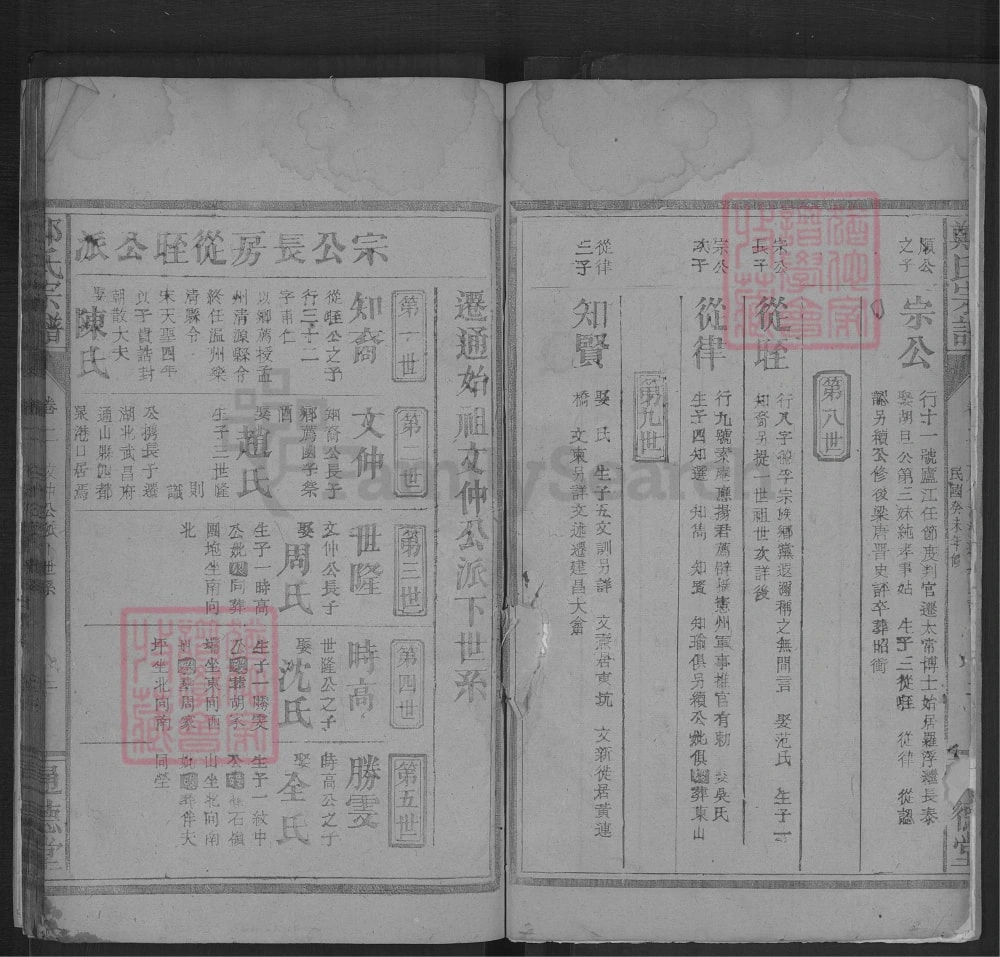 鄭氏宗譜
民國癸未年修
順公之子
宗公
行十一號廬江任節度判官遷太常博士始居羅浮遷長泰
娶胡旦公第三妹純孝事姑 生子三從旺 從律 從
另續公修後梁唐晉史評卒葬昭衝
第八世
宗公長子
從旺
行八字 宗族鄉黨遐邇稱之無間言 娶范氏 生子一
知裔另提一世祖世次詳後
宗公次子
從律
行九號 應揚君薦辟 惠州軍事推官有勅 娶吳氏
生子四知選 知雋 知賢 知瑜俱另續公妣俱葬東山
第九世
從律三子
知賢
娶 氏 生子五文訓另譜 文燕居東坑 文新徙居黃連
橋 文東另詳文述遷建昌大龠
遷通始祖文仲公派下世系
宗公長房從旺公派
第一世
知裔
從旺公之子
行三十二
字甫仁
以鄉薦授孟
州清源縣令
終任温州樂
清縣令
宋天聖四年
以子貴誥封
朝散大夫
娶陳氏
第二世
文仲
知裔公長子
鄉薦國學祭
酒
娶趙氏
生子三世隆
則
識
公携長子遷
湖北武昌府
通山縣四都
泉港口居焉
第三世
世隆
文仲公長子
娶周氏
生子一時高
公妣同葬
圓 坐南向
北
第四世
時高
世隆公之子
娶沈氏
生子一勝雯
公 葬胡
塌坐東向西
葬周家
坪坐北向南
第五世
勝雯
時高公之子
娶全氏
生子一紋中
公 石嶺
山坐北向南
葬 夫
同塋
鄭氏宗譜
卷二
通德堂